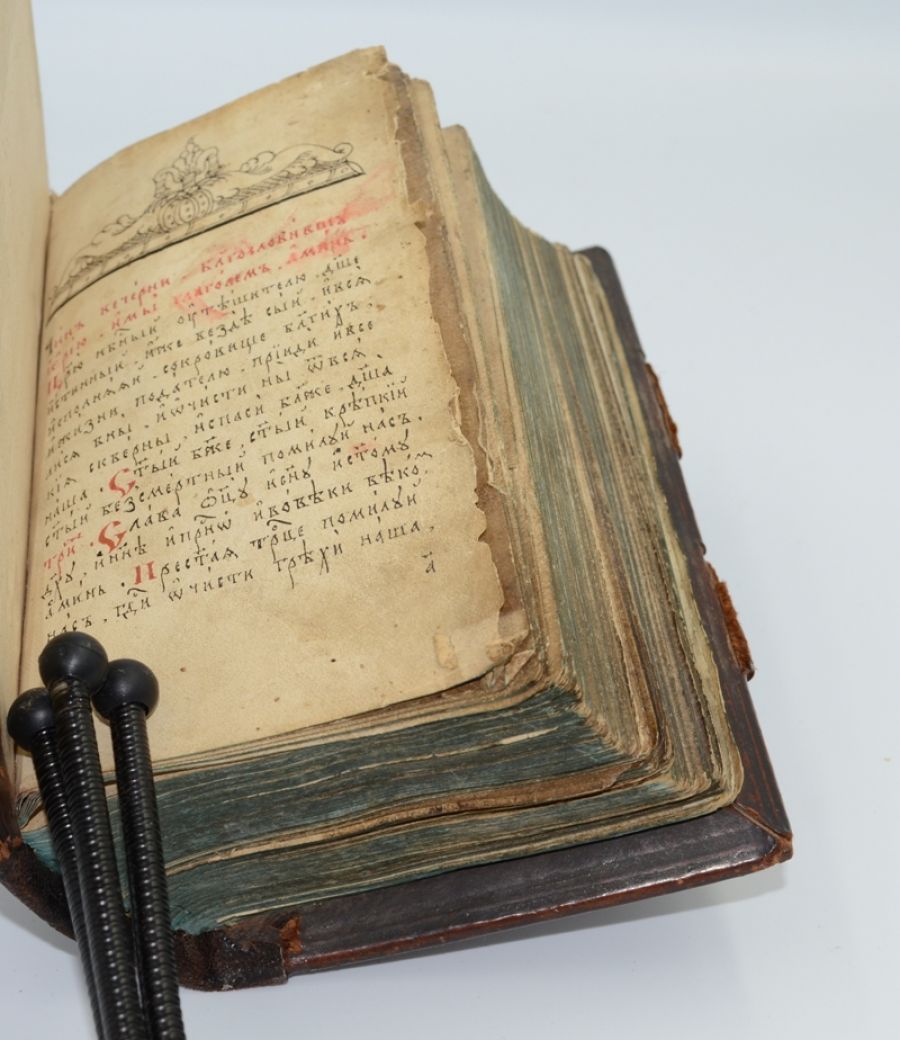 чи́нъ вече́рни . бл҃гослови́вшꙋ
іере́ю . и҆мы̀ глаго́лемъ . а҆ми́нь .
Цр҃ю нб҃ный ᲂу҆тѣ́шителю дш҃е
и҆́стинный . и҆́же вездѣ̀ сы́й . и҆всѧ̀
и҆сполнѧ́ѧй . сокро́вище бл҃ги́хъ .
и҆жи́зни пода́телю . прїидѝ и҆всели́
и҆сѧ вны̀ . и҆ѡ҆чи́сти ны̀ ѿвсѧ́
кїѧ скве́рны . и҆спасѝ бл҃же дш҃а
на́ша . Ст҃ы́й бж҃е , ст҃ы́й крѣ́пкїй
ст҃ы́й безсме́ртный поми́лꙋй на́съ .
три́ . Сла́ва ѻ҆ц҃ꙋ̀ и҆сн҃ꙋ и҆ст҃о́мꙋ
дх҃ꙋ , и҆нн҃ѣ и҆при́снѡ и҆вовѣ́ки вѣко́мъ
а҆ми́нь . Прест҃а́ѧ трⷪ҇це поми́лꙋй
на́съ . гдⷭ҇и ѡ҆чи́сти грѣхѝ на́ша .
а҃